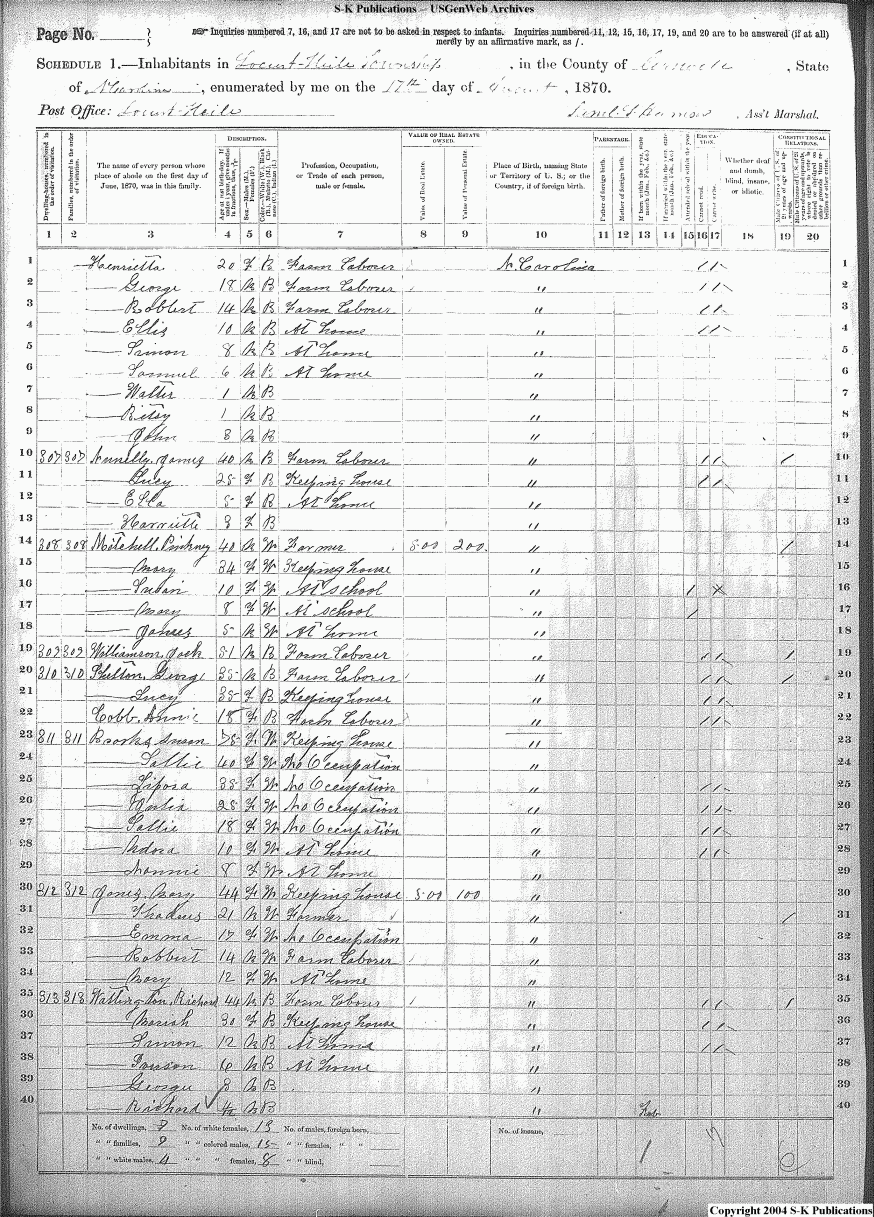 S-K Publications – USGenWeb Archives
Page No.
Inquiries numbered 7, 16, and 17 are not to be asked in respect to infants. Inquiries numbered 11, 12, 15, 16, 17, 19, and 20 are to be answered (if at all)
merely by an affirmative mark, as /.
SCHEDULE 1.—Inhabitants in Locust-Hill Township, in the County of, State
of N Carolina, enumerated by me on the 17th day of August, 1870.
Post Office: Locust-Hill Ass't Marshal.
DESCRIPTION. VALUE OF REAL ESTATE OWNED. PARENTAGE. EDUCATION. CONSTITUTIONAL RELATIONS.
Dwelling-houses, numbered in the order of visitation.
Families, numbered in the order of visitation.
The name of every person whose place of abode on the first day of June, 1870, was in this family.
Profession, Occupation, or Trade of each person, male or female.
Value of Real Estate.
Value of Personal Estate.
Place of Birth, naming State or Territory of U. S.; or the Country, if of foreign birth.
Father of foreign birth.
Mother of foreign birth.
Attended school within the year.
Cannot read.
Cannot write.
Whether deaf and dumb, blind, insane, or idiotic.
1 2 3 4 5 6 7 8 9 10 11 12 13 14 15 16 17 18 19 20
1 Henrietta 20 F B Farm Laborer N. Carolina / / 1
2 — George 18 M B Farm Laborer " / / 2
3 — Robbert 14 M B Farm Laborer " / / 3
4 — Ellis 10 M B At home " / / 4
5 — Simon 8 M B At home " 5
6 — Samuel 6 M B At home " 6
7 — Walter 1 M B " 7
8 — 1 M B " 8
9 — John 3 M B " 9
10 307 307 Nunnelly, James 40 M B Farm Laborer " / / / 10
11 — Lucy 25 F B Keeping house " / / 11
12 — Ella 5 F B At home " 12
13 — Harriette 3 F B " 13
14 308 308 Mitchell, Pinkney 40 M W Farmer 500 200 " / 14
15 — Mary 34 F W Keeping house " 15
16 — Susan 10 F W At school " / × 16
17 — Mary 8 F W At school " / 17
18 — James 5 M W At home " 18
19 309 309 Williamson, Jack 51 M B Farm Laborer " / / / 19
20 310 310 George 35 M B Farm Laborer " / / / 20
21 — Lucy 35 F B Keeping house " / / 21
22 Cobb, Annie 18 F B Farm Laborer " / / 22
23 311 311 Brooks, Susan 75 F W Keeping house " 23
24 — Sallie 40 F W No Occupation " 24
25 — 35 F W No Occupation " / / 25
26 — 25 F W No Occupation " / / 26
27 — Sallie 18 F W No Occupation " / / 27
28 — Adora 10 F W At home " / / 28
29 — Nannie 8 F W At home " 29
30 312 312 Jones, Mary 44 F W Keeping house 500 100 " 30
31 — Thadeus 21 M W Farmer " / 31
32 — Emma 17 F W No Occupation " 32
33 — Robbert 14 M W Farm Laborer " 33
34 — Mary 12 F W At home " 34
35 313 313 Watlington, Richard 44 M B Farm Laborer " / / / 35
36 — Mariah 30 F B Keeping house " / / 36
37 — Simon 12 M B At home " / / 37
38 — 6 M B At home " 38
39 — George 3 M B " 39
40 — Richard M B " Feb 40
No. of dwellings, 7 No. of white females, 13 No. of males, foreign born, No. of insane,
" " families, 9 " " colored males, 15 " " females, " "
" " white males, 4 " " " females, 8 " " blind,
Copyright 2004 S-K Publications